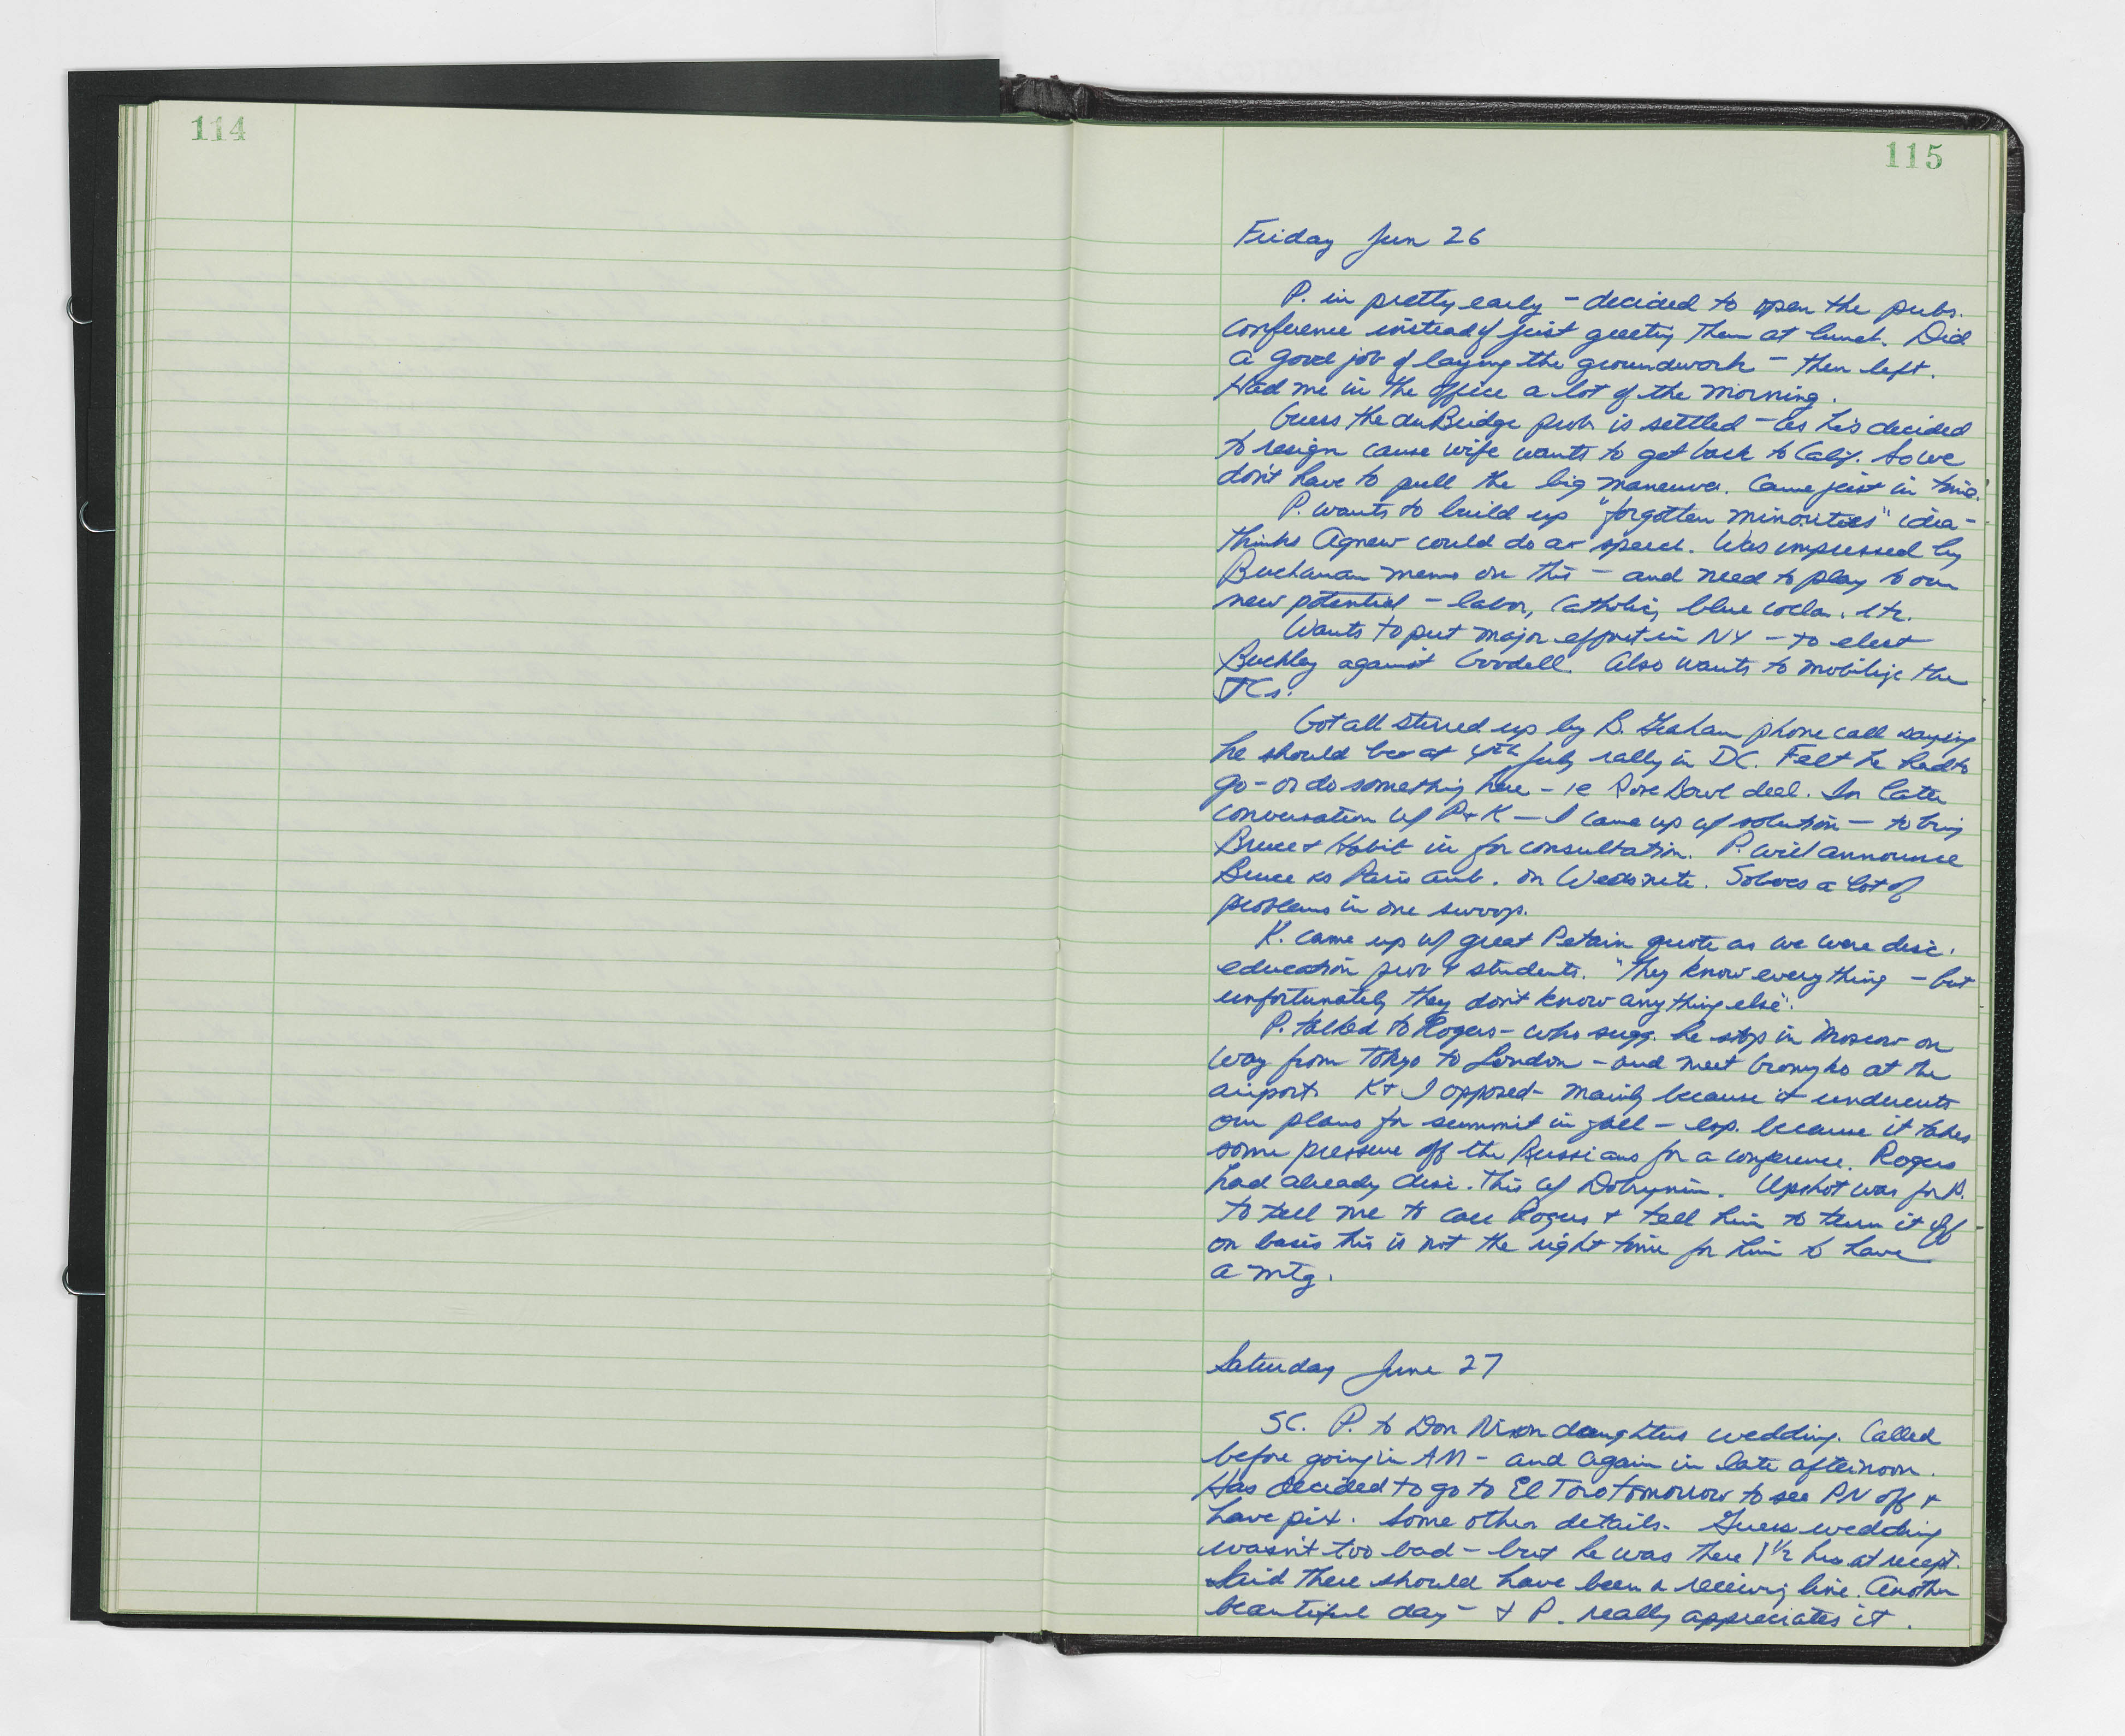 114
115
Friday Jun 26
P. in pretty early - decided to open the pubs.
conference instead of just greeting them at lunch. Did
a good job of laying the groundwork - then left.
Had me in the office a lot of the morning.
Guess the duBridge prob is settled - as he's decided
to resign cause wife wants to get back to Calif. So we
don't have to pull the big maneuver. Came just in time.
P. wants to build up "forgotten minorities" idea -
thinks Agnew could do a speech. Was impressed by
Buchanan memo on this - and need to play to our
new potential - labor, Catholic, blue collar. etc.
Wants to put major effort in NY - to elect
Buckley against Goodell. Also wants to mobilize the
JCs.
Got all stirred up by B. Graham phone call saying
he should be at 4th July rally in DC. Felt he had to
go - or do something here - ie Rose Bowl deal. In later
conversation w/ P + K - I came up w/ solution - to bring
Bruce + Habib in for consultation. P. will announce
Bruce as Paris amb. on Weds nite. Solves a lot of
problems in one swoop.
K. came up w/ great Petain quote as we were disc.
education prob & students. "They know everything - but
unfortunately they don't know anything else".
P. talked to Rogers - who sugg. he stop in Moscow on
way from Tokyo to London - and meet Gromyko at the
airport. K + I opposed - mainly because it undercuts
our plans for summit in fall - esp. because it takes
some pressure off the Russians for a conference. Rogers
had already disc. this w/ Dobrynin. Upshot was for P.
to tell me to call Rogers + tell him to turn it off -
on basis this is not the right time for him to have
a mtg.
Saturday June 27
SC. P. to Don Nixon daughters wedding. Called
before going in AM - and again in late afternoon.
Has decided to go to El Toro tomorrow to see PN off +
have pix. Some other details. Guess wedding
wasn't too bad - but he was there 1 1/2 hrs at recept.
Said there should have been a receiving line. Another
beautiful day - + P. really appreciates it.